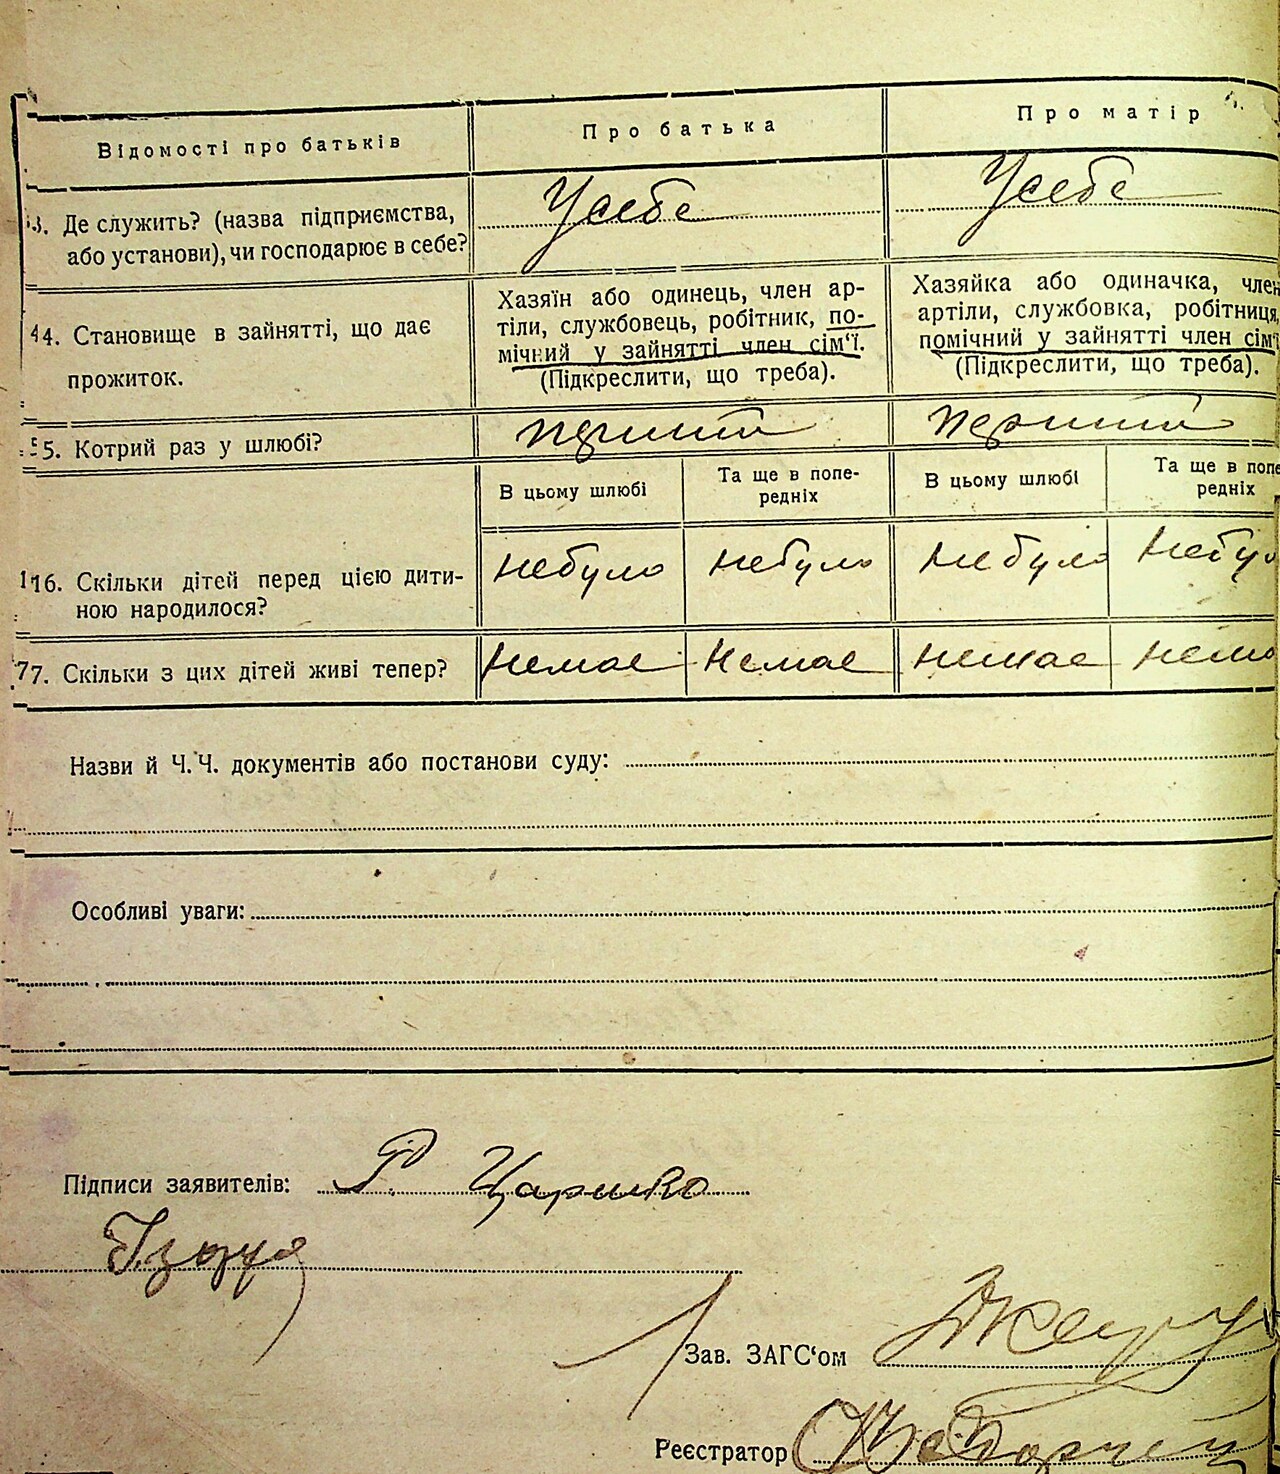 Відомості про батьків
Про батька
Про матір
Де служить? (назва підприємства,
або установи), чи господарює в себе?
Усебе
Усебе
Становище в зайнятті, що дає
прожиток.
Хазяїн або одинець, член ар-
тіли, службовець, робітник, по-
мічний у зайнятті член сім'ї.
(Підкреслити, що треба).
Хазяйка або одиначка, член
артіли, службовка, робітниця,
помічний у зайнятті член сім'ї
(Підкреслити, що треба).
5. Котрий раз у шлюбі?
перший
перший
В цьому шлюбі
Та ще в попе-
редніх
В цьому шлюбі
Та ще в попе
редніх
16. Скільки дітей перед цією дити-
ною народилося?
небуло
небуло
небуло
небуло
Скільки з цих дітей живі тепер?
немає
немає
немає
Назви й Ч.Ч. документів або постанови суду:
Особливі уваги:
Підписи заявителів:
Р. Царик
Зав. ЗАГС'ом
Реєстратор